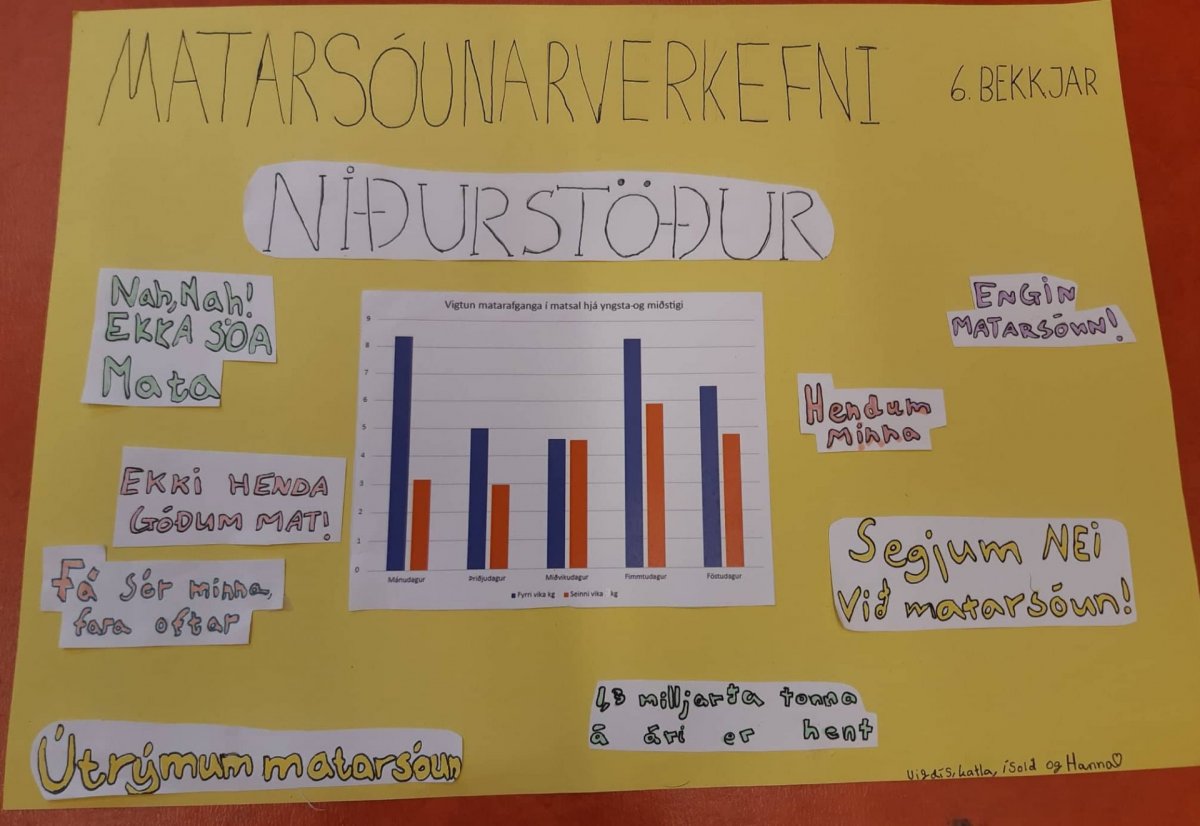 MATARSÓUNARVERKEFNI
6. BEKKJAR
NIÐURSTÖÐUR
Nah, Nah!
EKKA SÓA
Mata
ENGIN
MATARSÓUN!
Vigtun matarafganga í matsal hjá yngsta-og miðstigi
9
8
7
6
5
4
3
2
1
0
Mánudagur Þriðjudagur Miðvikudagur Fimmtudagur Föstudagur
Fyrri vika kg Seinni vika kg
Hendum
minna
EKKI HENDA
GÓÐUM MAT!
Segjum NEi
við matarsóun!
Fá sér minna,
fara oftar
1,3 milljarða tonna
á ári er hent
Útrýmum matarsóun
Vigdís, Katla, ísold og Hanna♡